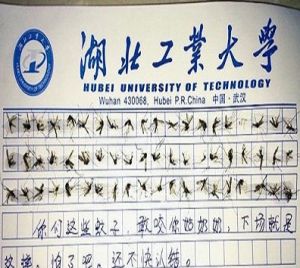 湖北工業大學
HUBEI UNIVERSITY OF TECHNOLOGY
Wuhan 430068, Hubei P.R.China 中国·武汉
你们这些蚊子 敢咬你奶奶, 下场就是
怕了吧。还不快认错。